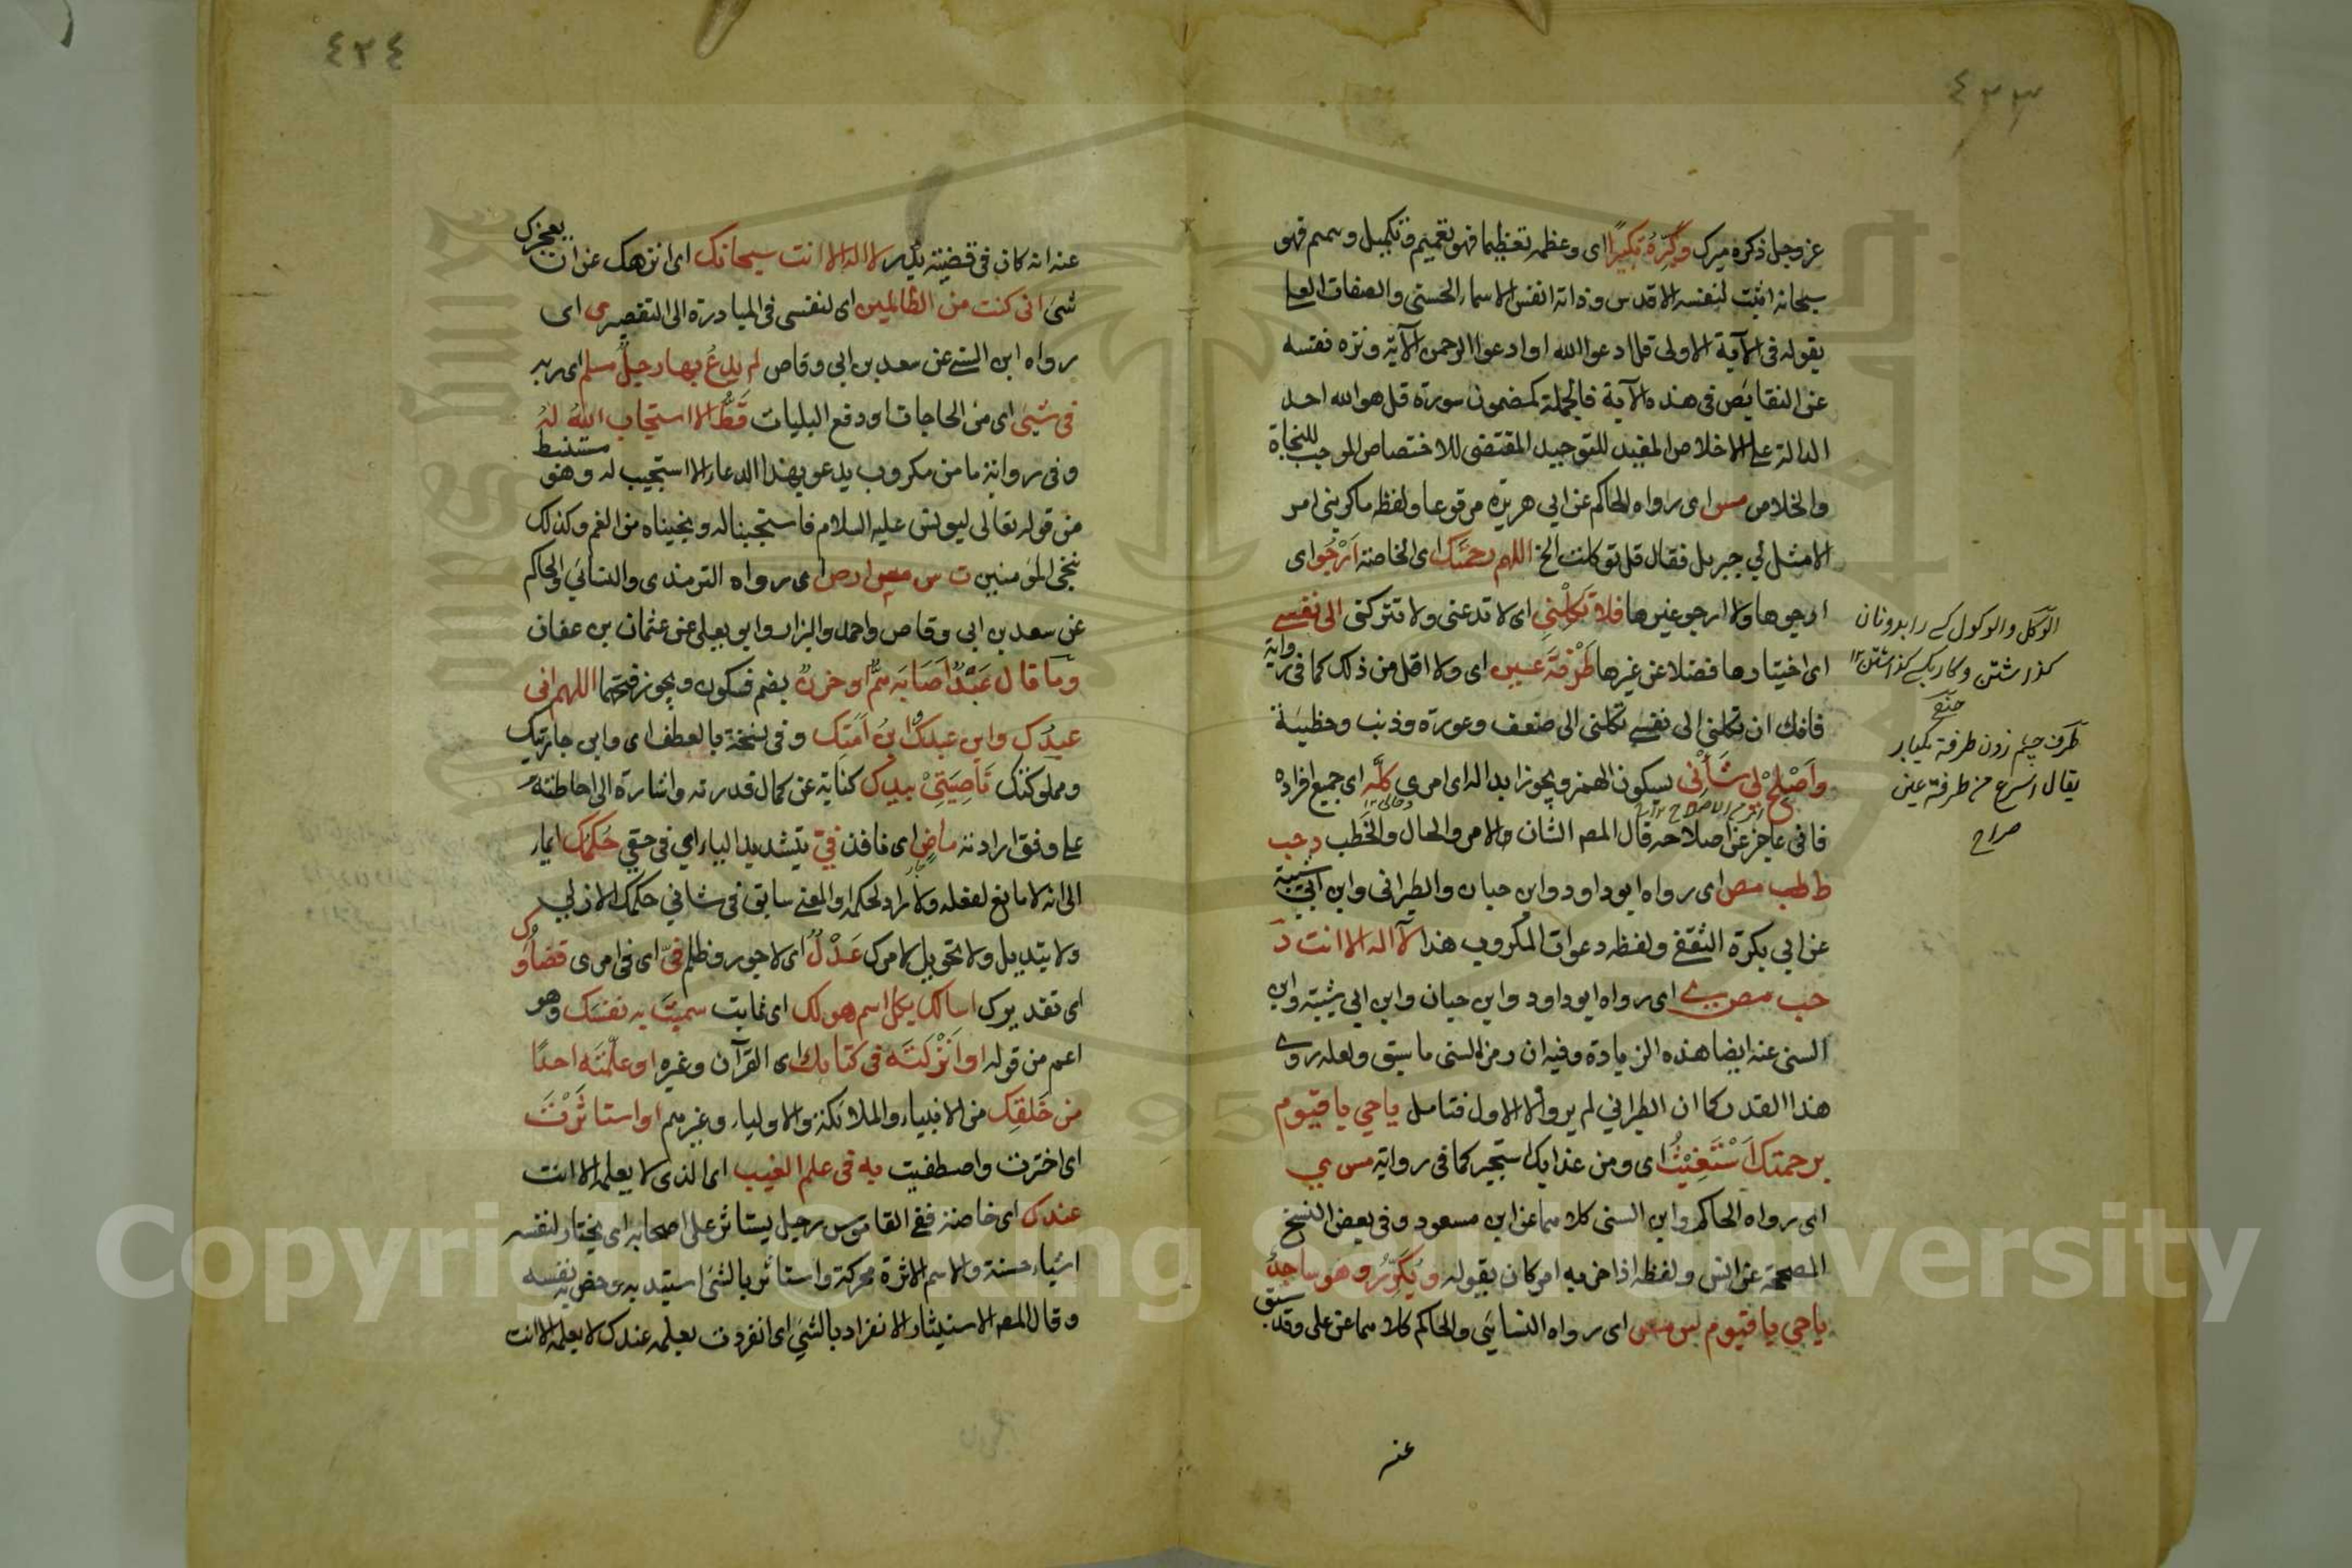 ٤٣٣
عز وجل ذكره ميرك وكبّره تكبيرًا اى وعظمه تعظيما فهو تعميم وتكميل وتميم فهو
سبحانه اثبت لنفسه الاقدس وذاته انفس الاسماء الحسنى والصفات العليا
بقوله فى الآية الاولى قل ادعوا الله اوادعوا الرحمن الآية ونزه نفسه
عن النقايص فى هذه الآية فالجملة كمضمون سورة قل هو الله احد
الدالة على الاخلاص المفيد للتوحيد المقتضى للاختصاص الموجب للنجاة
والخلاص مس اى رواه الحاكم عن ابي هريرة مرفوعا ولفظه ماكربنى امر
الا مثل لي جبريل فقال قل توكلت الخ اللهم رحمتك اى الخاصة ارجُوا اى
ارجوها ولا ارجو غيرها فلا تكلني اى لا تدعنى ولا تتركنى الى نفسے
اى اختيارها فضلا عن غيرها طَرْفَةَ عين اى ولا اقل من ذلك كما فى رواية
فانك ان تكلني الى نفسے تكلنى الى ضعف وعورة وذنب وخطيئة
وَاَصْلِحْ لى شَأْنى بسكون الهمز ويجوز ابداله اى امرى كلَّه اى جميع افراده
فانى عاجز عن اصلاحه قال المصه الشان والامر والحال والخَطب د حب
ط طب مص اى رواه ابو داود وابن حبان والطبرانى وابن ابي شيبة
عن ابي بكرة الثقفے ولفظه دعوات المكروب هذا لآ اله الا انت د
حب مص ى اى رواه ابو داود وابن حبان وابن ابي شيبة وابن
السنى عنه ايضا هذه الزيادة وفيه ان رمز السنى ما سبق ولعله روى
هذا القدر كما ان الطبراني لم يرو الا الاول فتامل ياحي يا قيوم
برحمتك اَسْتَغِيْثُ اى ومن عذابك استجير كما فى رواية مس ي
اى رواه الحاكم وابن السنى كلاهما عن ابن مسعود وفى بعض النسخ
المصححة عن انس ولفظه اذا حزبه امر كان يقوله ويُكَرِّرُ وهو ساجدٌ
ياحي يا قيوم س مس اى رواه النسائى والحاكم كلاهما عن على وقد سبق
عنه
الوكل والوكول كے رابدونان
كذاشتن وكار بكے كذاشتن ١٢
طرف چشم زدن طرفة يكبار
يقال اسرع من طرفة عين
صراح
٤٣٤
عنه انه كان فى قضية بدر لا اله الا انت سبحانك اى انزهك عن ان يعجزك
شئ انى كنت من الظالمين اى لنفسى فى المبادرة الى التقصير ى اى
رواه ابن السنے عن سعد بن ابى وقاص لم يدعُ بها رجلٌ مسلم اى ربه
فى شيئ اى من الحاجات او دفع البليات قَطُّ الا استجاب اللهُ لهُ
وفى رواية ما من مكروب يدعو بهذا الدعاء الا استجيب له وهو مستنبط
من قوله تعالى ليونس عليه السلام فاستجبنا له ونجيناه من الغم وكذلك
ننجى المؤمنين ت س مس ا ر ص اى رواه الترمذى والنسائى والحاكم
عن سعد بن ابى وقاص واحمد والبزار وابو يعلى عن عثمان بن عفان
وما قال عَبْدٌ اَصَابَه همٌّ او حزنٌ بضم فسكون ويجوز فتحهما اللهم انى
عبدك وابن عبدك ابنُ اَمَتِك وفى نسخة بالعطف اى وابن جاريتك
ومملوكتك نَاصِيَتِىْ بيدك كناية عن كمال قدرته واشارة الى احاطته
على وفق ارادته ماضٍ اى نافذ فيّ بتشديد الياء اي فى حقي حُكمُك ايماء
الى انه لا مانع لفعله ولا راد لحكمه والمعنے سابق فى شانى حكمك الازلي
ولا تبديل ولا تحويل لامرك عَدْلٌ اى لا جور وظلم فىّ اى فى امرى قضاؤك
اى تقديرك اسالك بكل اسم هو لك اى ثابت سميتَ به نفسَك وهو
اعم من قوله او اَنْزَلتَه فى كتابك اى القرآن وغيره او علّمتَه احدًا
من خَلقِك من الانبياء والملائكة والاولياء وغيرهم او استاثَرْتَ
اى اخترت واصطفيت به فى علم الغيب اى الذى لا يعلمه الا انت
عندك اى خاصة ففے القاموس رجل يستاثر على اصحابه اى يختار لنفسه
اشياء حسنة والاسم الاثرة محركة واستاثر بالشئ استبد به وخص به نفسه
وقال المصه الاستيثار الانفراد بالشئ اى انفردت بعلمه عندك لا يعلمه الا انت
Copyright © King Saud University